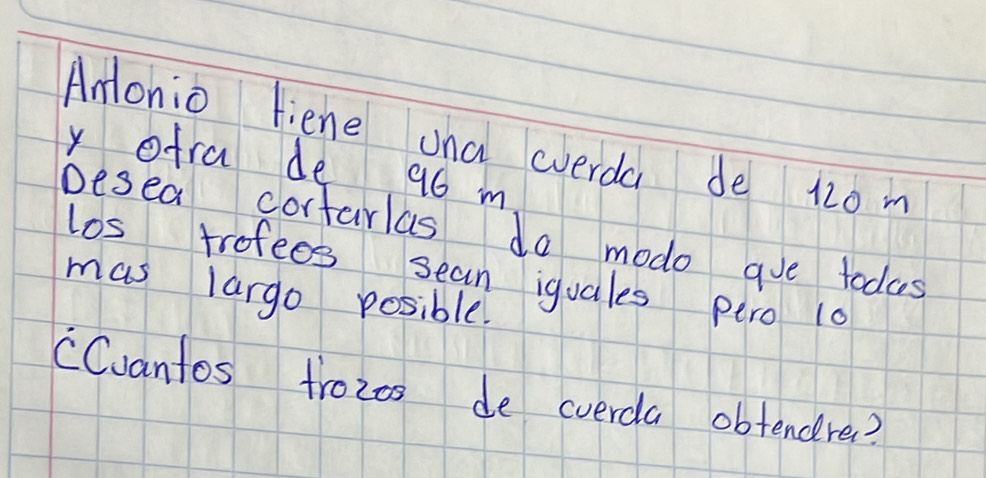 Antonio tiene una cuerda de 120 m
y otra de 96 m
Desea cortarlas da modo que todas
los trofeos sean iguales pero lo
mas largo posible.
¿Cuantos trozos de cuerda obtendra?